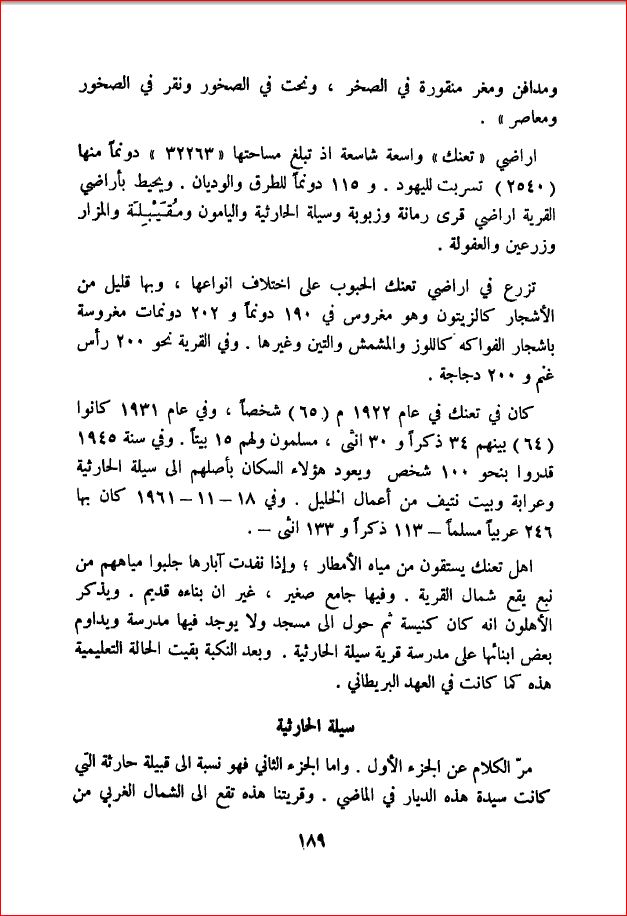 ومدافن ومغر منقورة في الصخر ، ونحت في الصخور ونقر في الصخور
ومعاصر » .
اراضي « تعنك » واسعة شاسعة اذ تبلغ مساحتها « ٣٢٢٦٣ » دونماً منها
(٢٥٤٠) تسربت لليهود . و ١١٥ دونماً للطرق والوديان . ويحيط بأراضي
القرية اراضي قرى رمانة وزبوبة وسيلة الحارثية واليامون ومُقَيْبِلَة والمزار
وزرعين والعفولة .
تزرع في اراضي تعنك الحبوب على اختلاف انواعها ، وبها قليل من
الأشجار كالزيتون وهو مغروس في ١٩٠ دونماً و ٢٠٢ دونمات مغروسة
باشجار الفواكه كاللوز والمشمش والتين وغيرها . وفي القرية نحو ٢٠٠ رأس
غنم و ٢٠٠ دجاجة .
كان في تعنك في عام ١٩٢٢ م (٦٥) شخصاً ، وفي عام ١٩٣١ كانوا
(٦٤) بينهم ٣٤ ذكراً و ٣٠ انثى ، مسلمون ولهم ١٥ بيتاً . وفي سنة ١٩٤٥
قدروا بنحو ١٠٠ شخص ويعود هؤلاء السكان بأصلهم الى سيلة الحارثية
وعرابة وبيت نتيف من أعمال الخليل . وفي ١٨ – ١١ – ١٩٦١ كان بها
٢٤٦ عربياً مسلماً – ١١٣ ذكراً و ١٣٣ انثى – .
اهل تعنك يستقون من مياه الأمطار ؛ وإذا نفدت آبارها جلبوا مياههم من
نبع يقع شمال القرية . وفيها جامع صغير ، غير ان بناءه قديم . ويذكر
الأهلون انه كان كنيسة ثم حول الى مسجد ولا يوجد فيها مدرسة ويداوم
بعض ابنائها على مدرسة قرية سيلة الحارثية . وبعد النكبة بقيت الحالة التعليمية
هذه كما كانت في العهد البريطاني .
سيلة الحارثية
مرّ الكلام عن الجزء الأول . واما الجزء الثاني فهو نسبة الى قبيلة حارثة التي
كانت سيدة هذه الديار في الماضي . وقريتنا هذه تقع الى الشمال الغربي من
١٨٩